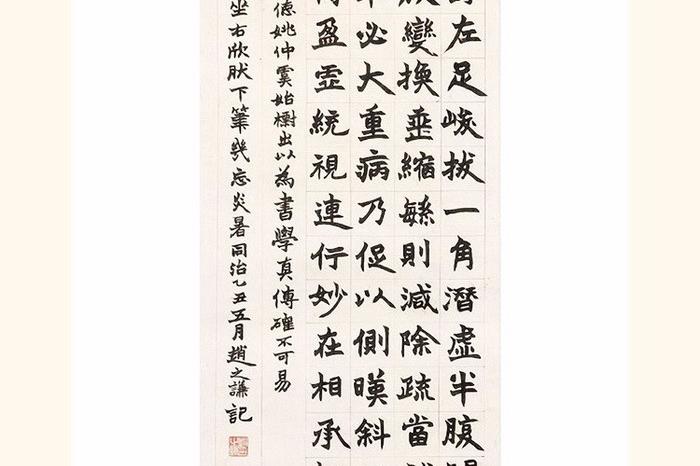 左足峻拔一角潛虛半腹
變換垂縮緐則減除疏當
必大重病乃促以側暎斜
盈虛統視連行妙在相承
姚仲虞始出以為書學真傳確不可易
坐右欣肰下筆幾忘炎暑同治乙丑五月趙之謙記